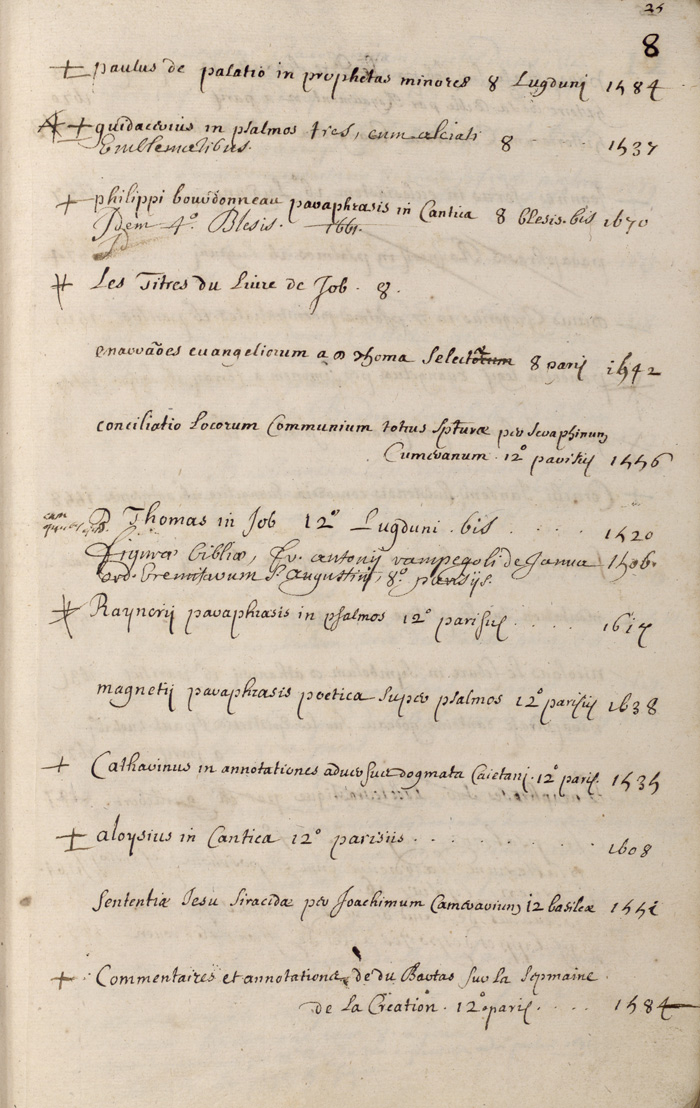 25
8
paulus de palatio in prophetas minores 8 Lugdunj 1584
quidacerius in psalmos tres, cum alciati 8 1537
Emblematibus.
philippi bourdonneau paraphrasis in Cantica 8 blesis. bis 1670
Idem 4º. Blesis. 1661.
Les Titres du Livre de Job. 8.
enarrãoes euangeliorum a D Thoma Select 8 parisij 1542
conciliatio Locorum Communium totius Spturæ per Seraphinum
Cumeranum. 12º parisiij 1556
D Thomas in Job 12º Lugduni. bis 1520
figuræ bibliæ, fr. antonij rampegoli de Janua
ord. Eremitarum S. Augustini, 8º. parisijs.
Raynerij paraphrasis in psalmos 12º parisiis
magnetij paraphrasis poetica super psalmos 12º parisiij 1638
Catharinus in annotationes aduersus dogmata Caietani. 12º paris. 1535
aloysius in Cantica 12º parisiis 1608
Sententiæ Iesu Siracidæ per Joachimum Camerarium 12 basileæ
Commentaires et annotations de du Bartas sur la Sepmaine
de La Creation. 12º paris. 1584